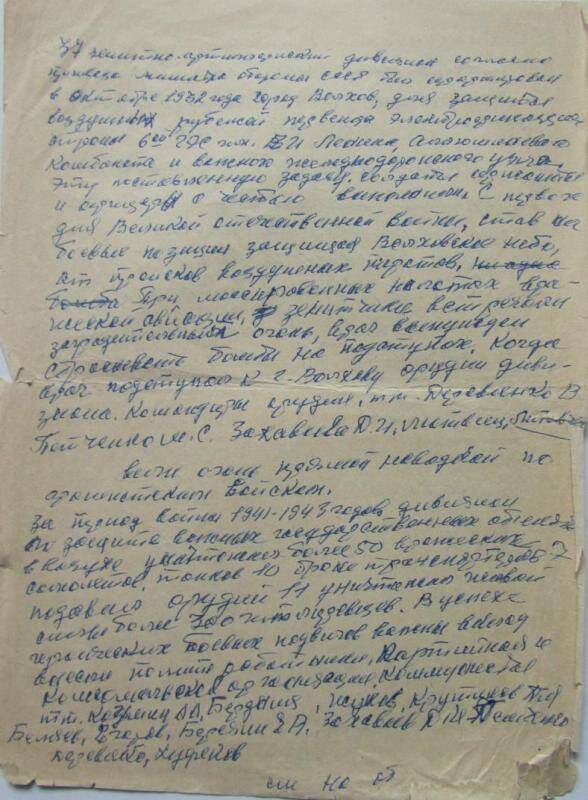 37 зенитно-артиллерийский дивизион согласно
приказа министра обороны СССР был сформирован
в октябре 1932 года город Волхов, для защиты
воздушных рубежей первенца электрификации
страны 6ой ГЭС им. В И Ленина, Алюминиевого
Комбината и важного железнодорожного узла,
эту поставленную задачу, солдаты сержанты
и офицеры с честью выполнили. С первых
дня Великой отечественной войны, став на
боевые позиции защищая Волховское небо,
от происков воздушных пиратов, ни одна
бомба При массированных налетах вра-
жеской авиации, зенитчики встречали
заградительным огнем, враг вынужден
сбрасывать бомбы на подступах. Когда
враг подступал к г. Волхову орудия диви-
зиона. Командиры орудий, тт. Деревленко В
Петченко М.С. Захаваева Д.И.
вели огонь прямой наводкой по
фашистским войскам.
За период войны 1941-1943 годов дивизион
по защите важных государственных объектов
в воздухе уничтожил более 50 вражеских
самолетов. танков 10 броне транспортеров 7
подавлено орудий 11 уничтожено живой
силы более 300 гитлеровцев. В успехе
героических боевых подвигов важны вклад
внесли полит работники, Партийная и
Комсомольская организации, Коммунисты
тт. А.А. Бердяния, Жуков,
Беляев, Егоров, Березин А. Захаваев Д И
см на об